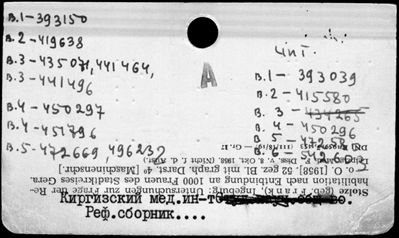 В.1-393150
В.2-419638
В.3-435071, 441464,
В.3-441496
В.4-450297
В.4-451796
В.5-472669, 496232
А
Чит.
В.1- 393039
В.2-415580
В. 3 -434265
В. 4 -450296
В. 5 -472
В. 6 -542
Stolze (geb. Frank), Ingeburg: Untersuchungen zur Frage der Re-
habilitation nach Entbindung an 1000 Frauen des Stadtkreises Gera.
o. O. [1958]. 52 gez. Bl. mit graph. Darst. 4° [Maschinenschr.]
Leipzig, Med. F., Diss. v. 8. Okt. 1958
Киргизский мед.ин-т
Реф.сборник....